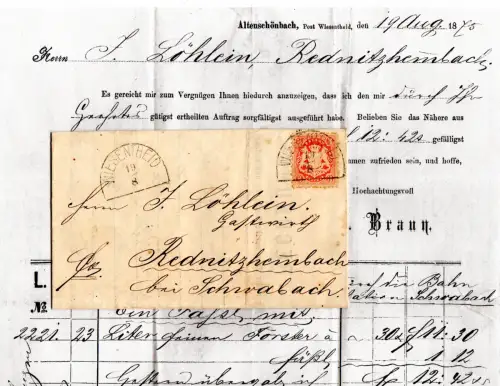 Altenschönbach, Post Wiesentheid, den 19 Aug. 1875
Herrn J. Löhlein, Rednitzhembach.
Es gereicht mir zum Vergnügen Ihnen hiedurch anzuzeigen, dass ich den mir durch Ihr
Geehrtes gütigst ertheilten Auftrag sorgfältigst ausgeführt habe. Belieben Sie das Nähere aus
12: 42 gefälligst
zufrieden sein, und hoffe,
Hochachtungsvoll
Braun.
WIESENTHEID
19
8
Herrn J. Löhlein.
Gastwirth
Rednitzhembach
bei Schwabach
die Bahn
Station Schwabach
L.
No.
Ein Fässl, mit,
2221. 23 Liter feinen Forster à 30 f 11: 30
Fässl 1 12
Gestern übergab in f 12: 42